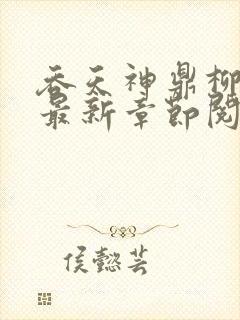 吞天神鼎柳
最新章节阅
侯懿芸